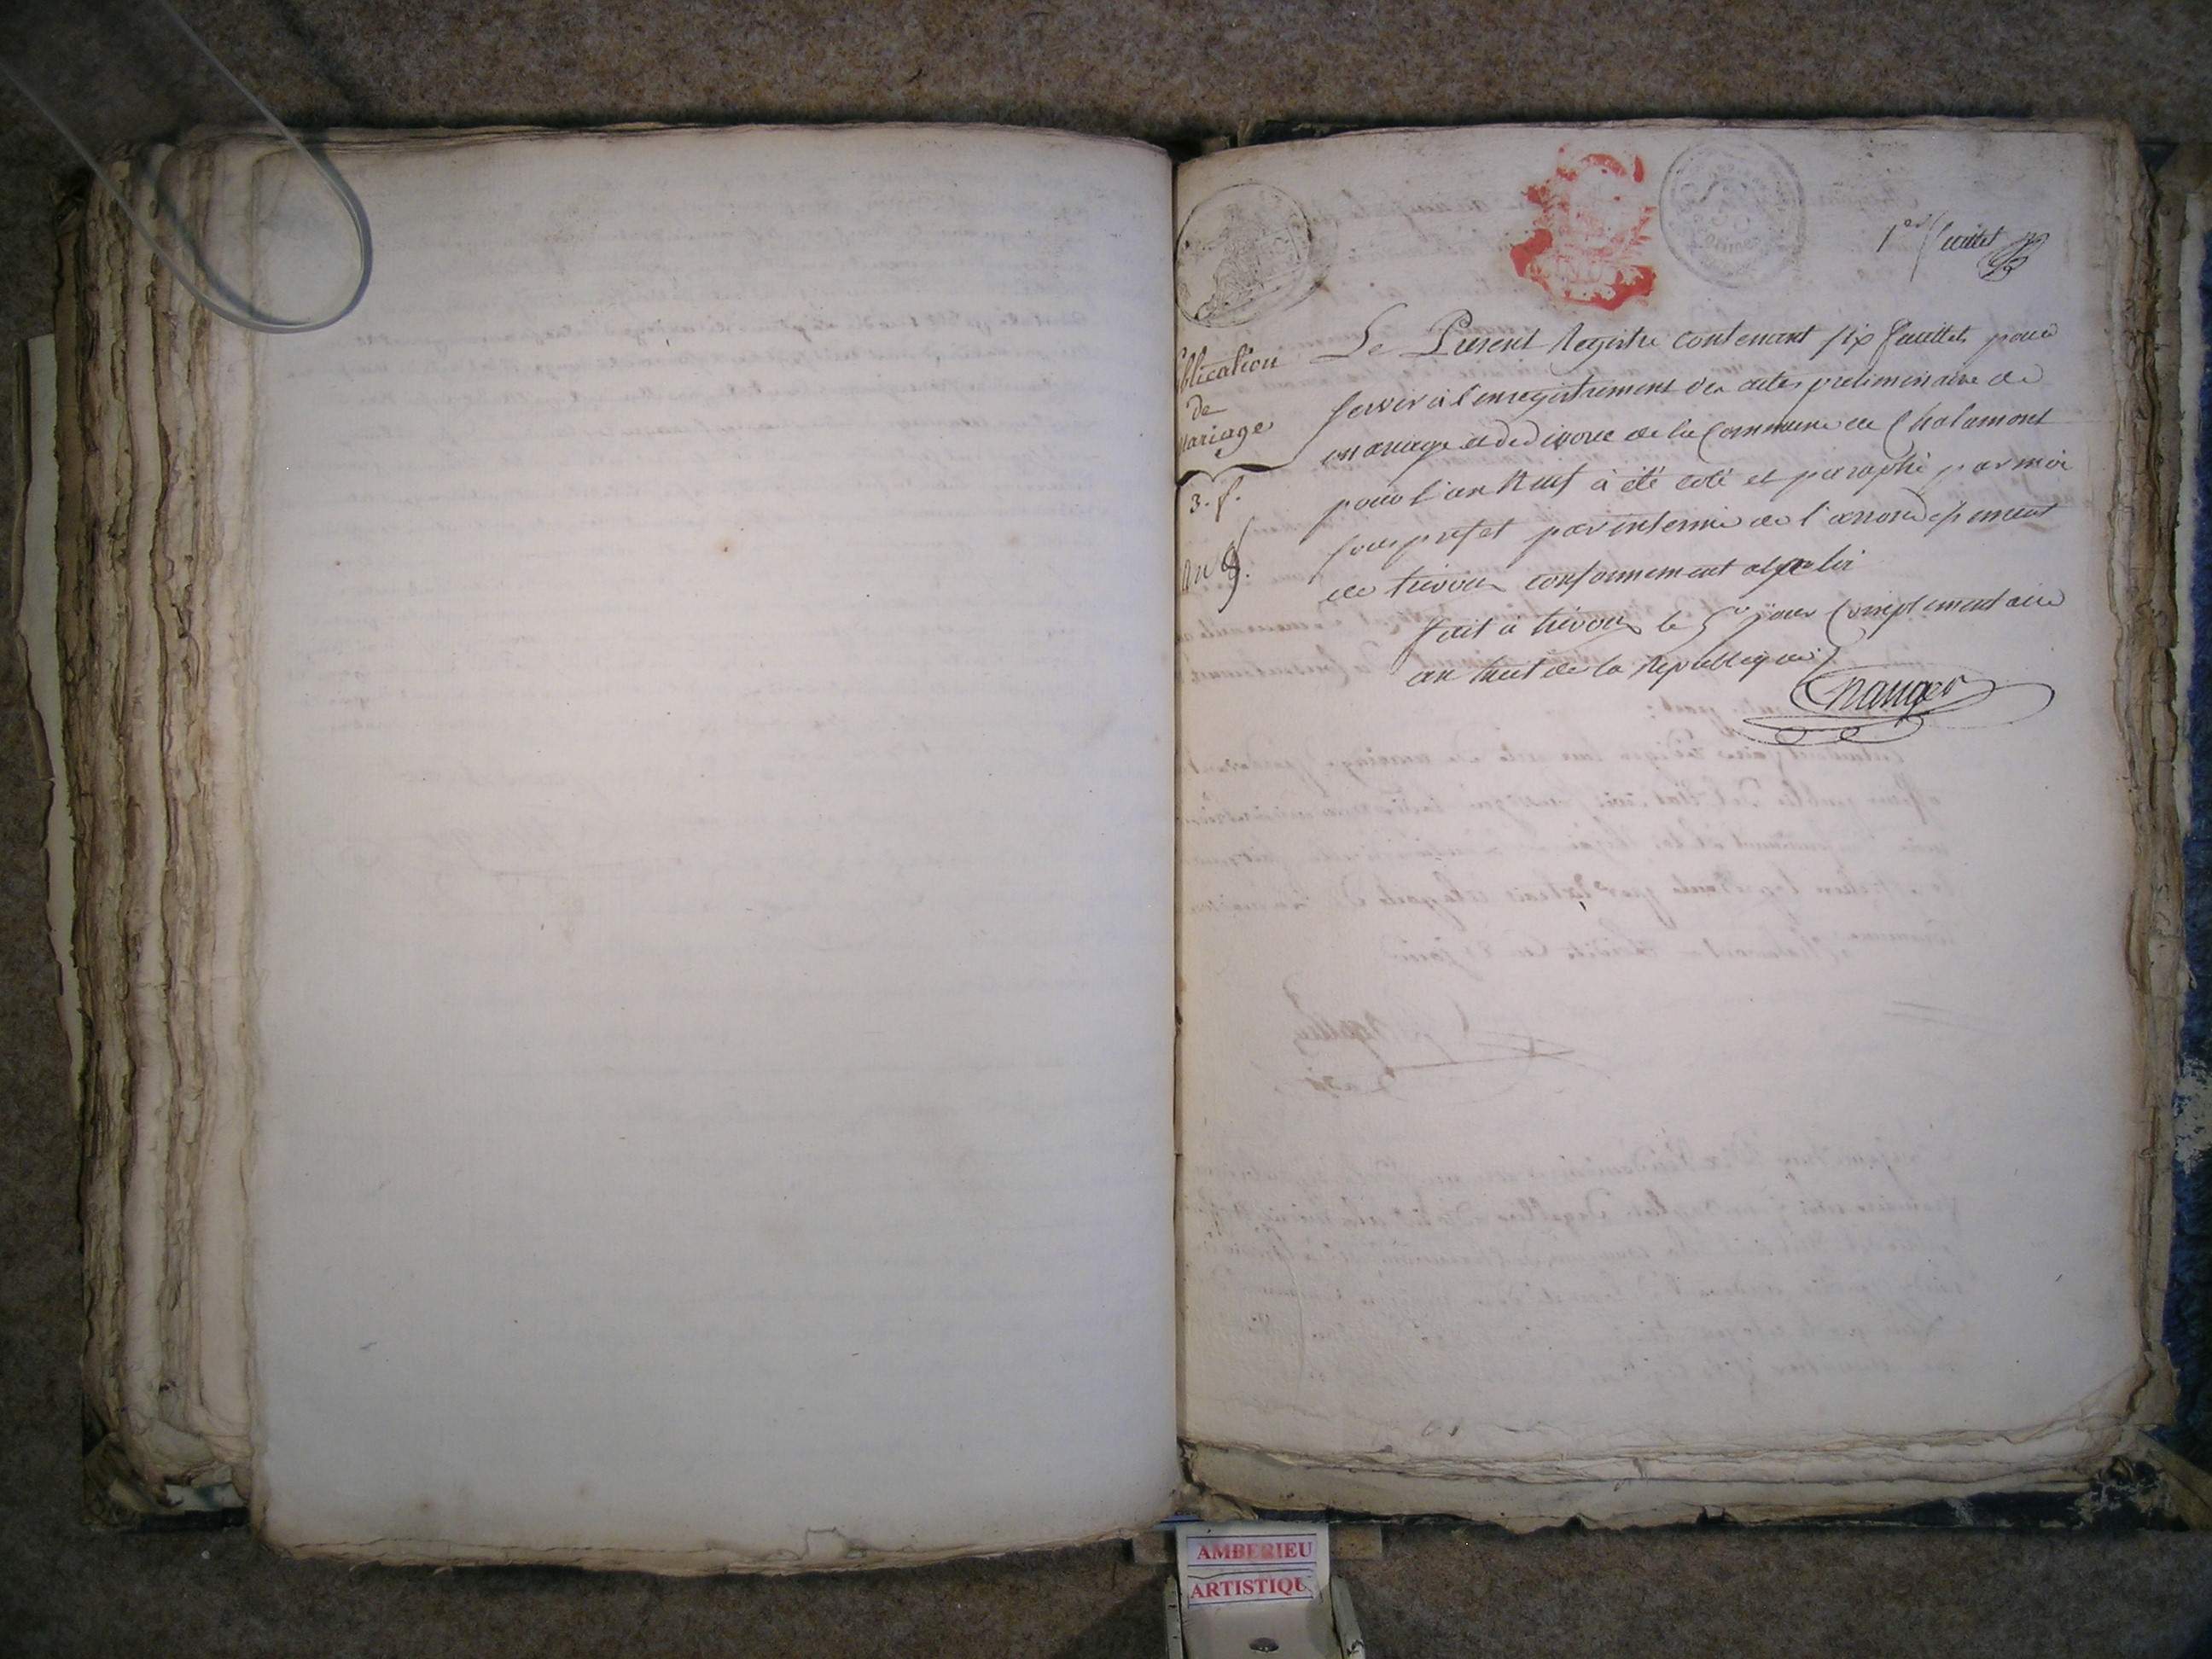 1er feuillet
Publication
de
Mariage
3. f.
an 9.
Le Present Registre contenant six feuillets pour
servir à l'enregistrement des actes preliminaire de
mariage et de divorce de la Commune de Chalamont
pour l'an Neuf à été coté et paraphé par moi
sous prefet par interim de l'arrondissement
de trevoux conformement a la loi
fait a trevoux le 5e jour Complementaire
an huit de la Republique
AMBERIEU
ARTISTIQU